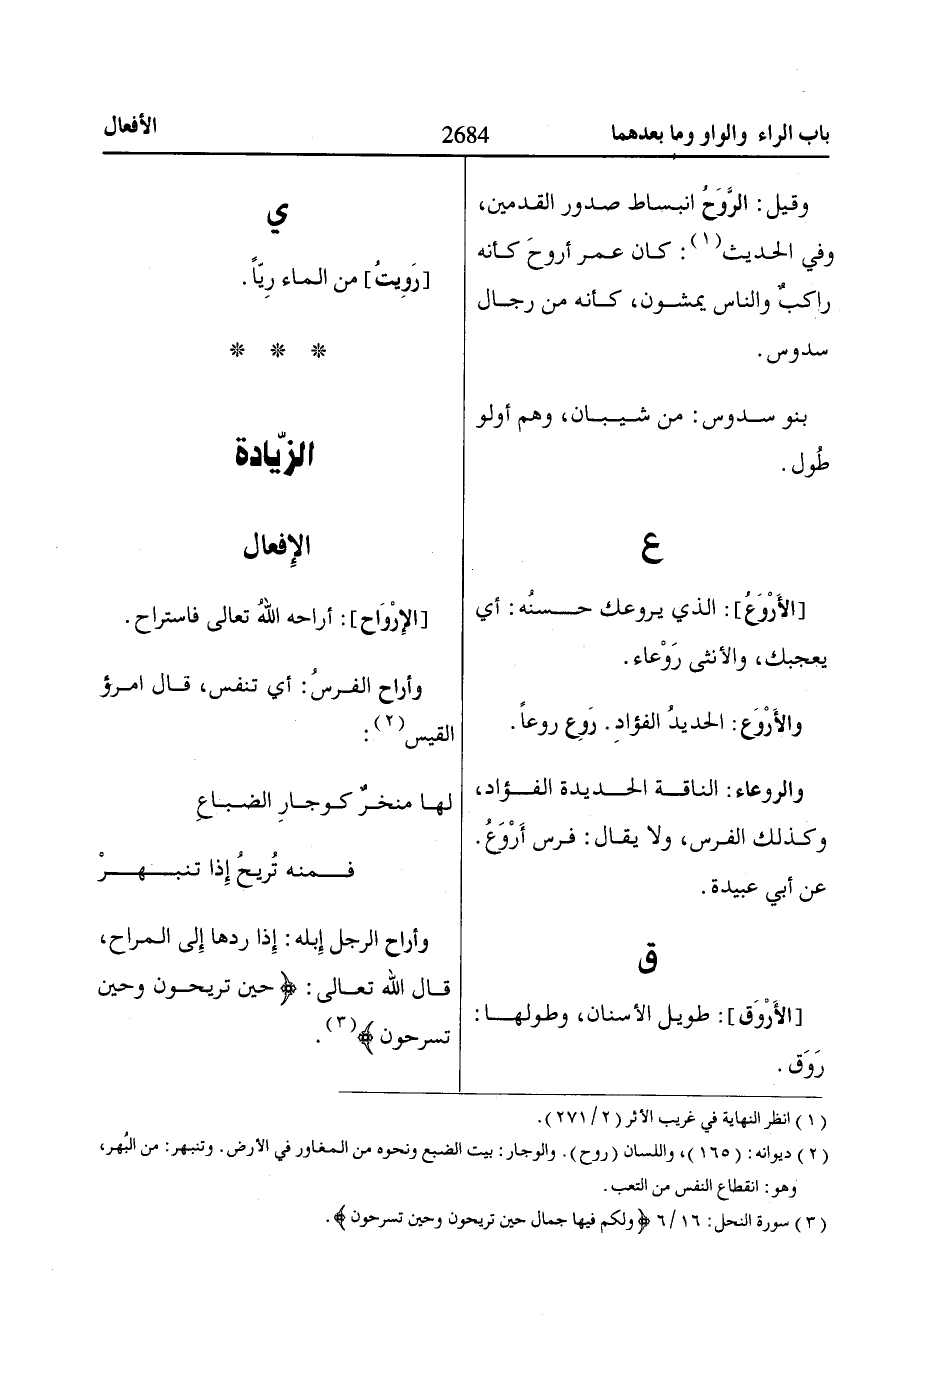 باب الراء والواو وما بعدهما 2684 الأفعال
وقيل: الرَّوَحُ انبساط صدور القدمين،
وفي الحديث(١): كان عمر أروحَ كأنه
راكبٌ والناس يمشون، كأنه من رجال
سدوس.
بنو سدوس: من شيبان، وهم أولو
طُول.
ع
[الأَرْوَعُ]: الذي يروعك حسنُه: أي
يعجبك، والأنثى رَوْعاء.
والأَرْوَع: الحديدُ الفؤادِ. رَوِع روعاً.
والروعاء: الناقة الحديدة الفؤاد،
وكذلك الفرس، ولا يقال: فرس أَرْوَعُ.
عن أبي عبيدة.
ق
[الأَرْوَق]: طويل الأسنان، وطولها:
رَوَق.
ي
[رَوِيتُ] من الماء رِيّاً.
* * *
الزّيادة
الإفعال
[الإرْوَاح]: أراحه اللهُ تعالى فاستراح.
وأراح الفرسُ: أي تنفس، قال امرؤ
القيس(٢):
لها منخرٌ كوجارِ الضباعِ
فمنه تُريحُ إذا تنبهرْ
وأراح الرجل إبله: إذا ردها إلى المراح،
قال الله تعالى: ﴿حين تريحون وحين
تسرحون﴾(٣).
(١) انظر النهاية في غريب الأثر (٢/ ٢٧١).
(٢) ديوانه: (١٦٥)، واللسان (روح). والوجار: بيت الضبع ونحوه من المغاور في الأرض. وتنبهر: من البُهر،
وهو: انقطاع النفس من التعب.
(٣) سورة النحل: ١٦/ ٦ ﴿ولكم فيها جمال حين تريحون وحين تسرحون﴾.